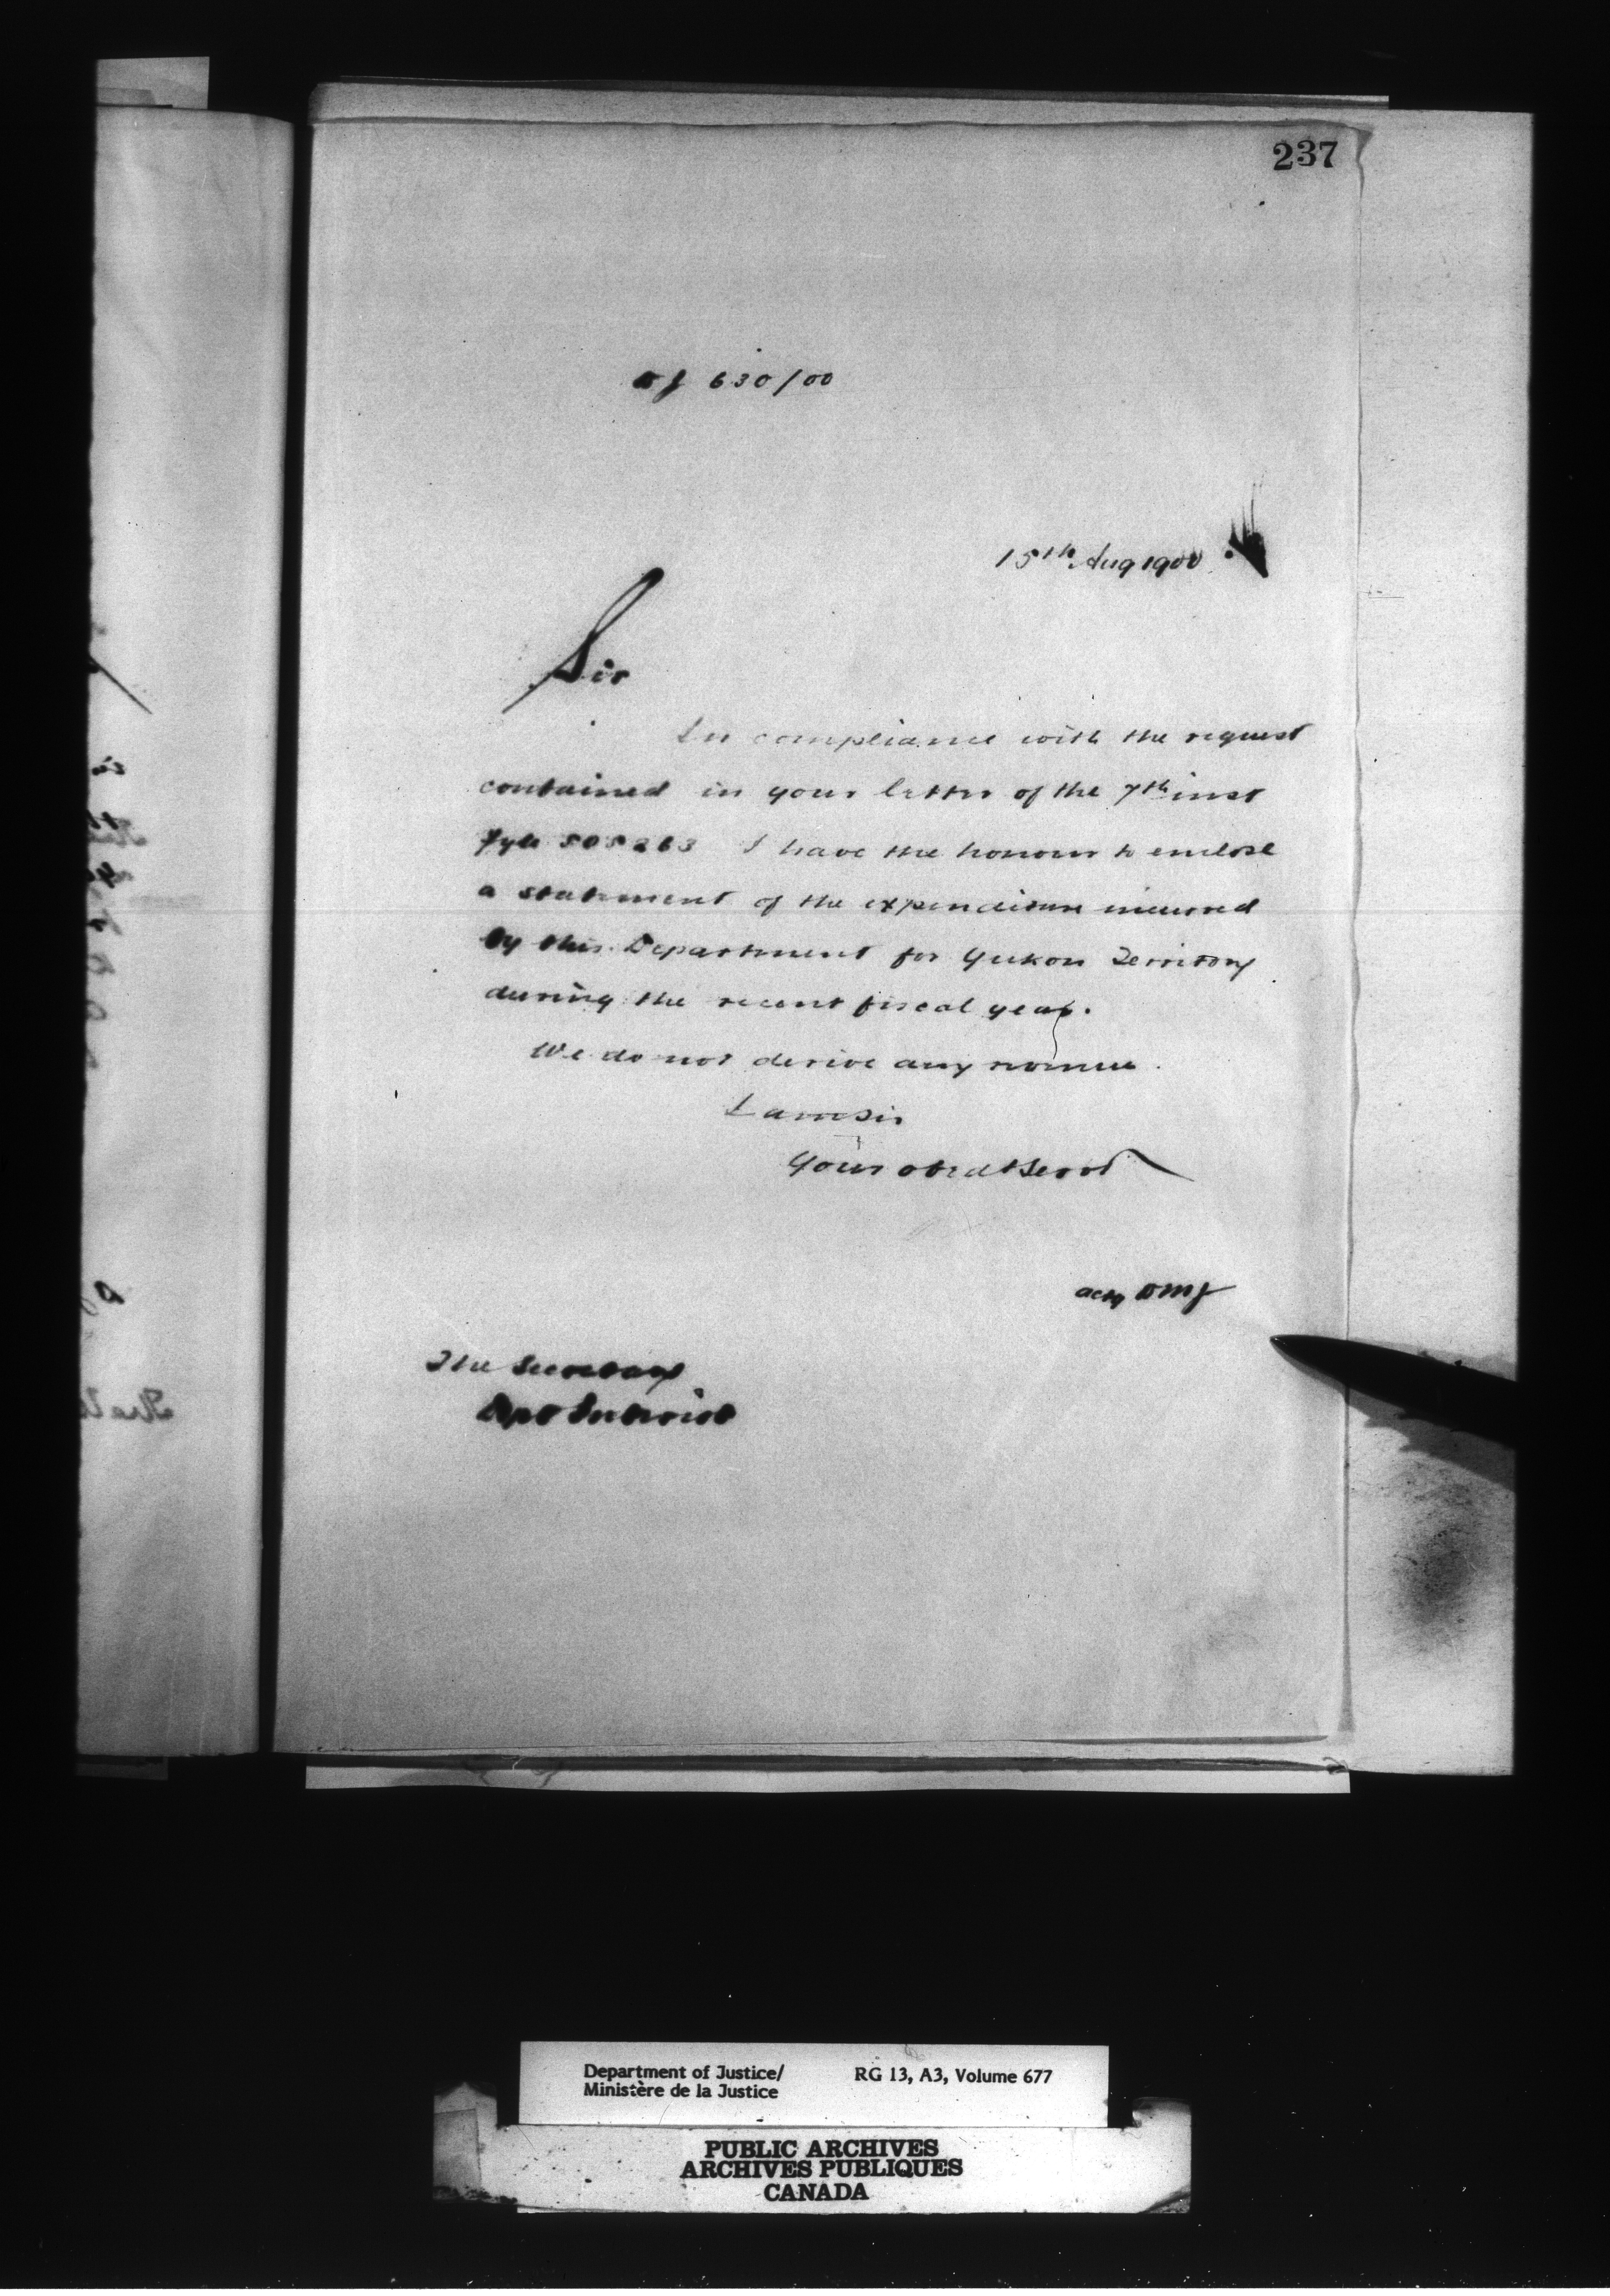 237
DJ 630/00
15th Aug 1900
Sir
In compliance with the request
contained in your letter of the 7th inst
fyle 505263 I have the honour to enclose
a statement of the expenditure incurred
by this Department for Yukon Territory
during the recent fiscal year.
We do not derive any revenue.
I am Sir
Your obedt Servt
actg DMJ
The Secretary
Dept Interior
Department of Justice/
Ministère de la Justice
RG 13, A3, Volume 677
PUBLIC ARCHIVES
ARCHIVES PUBLIQUES
CANADA